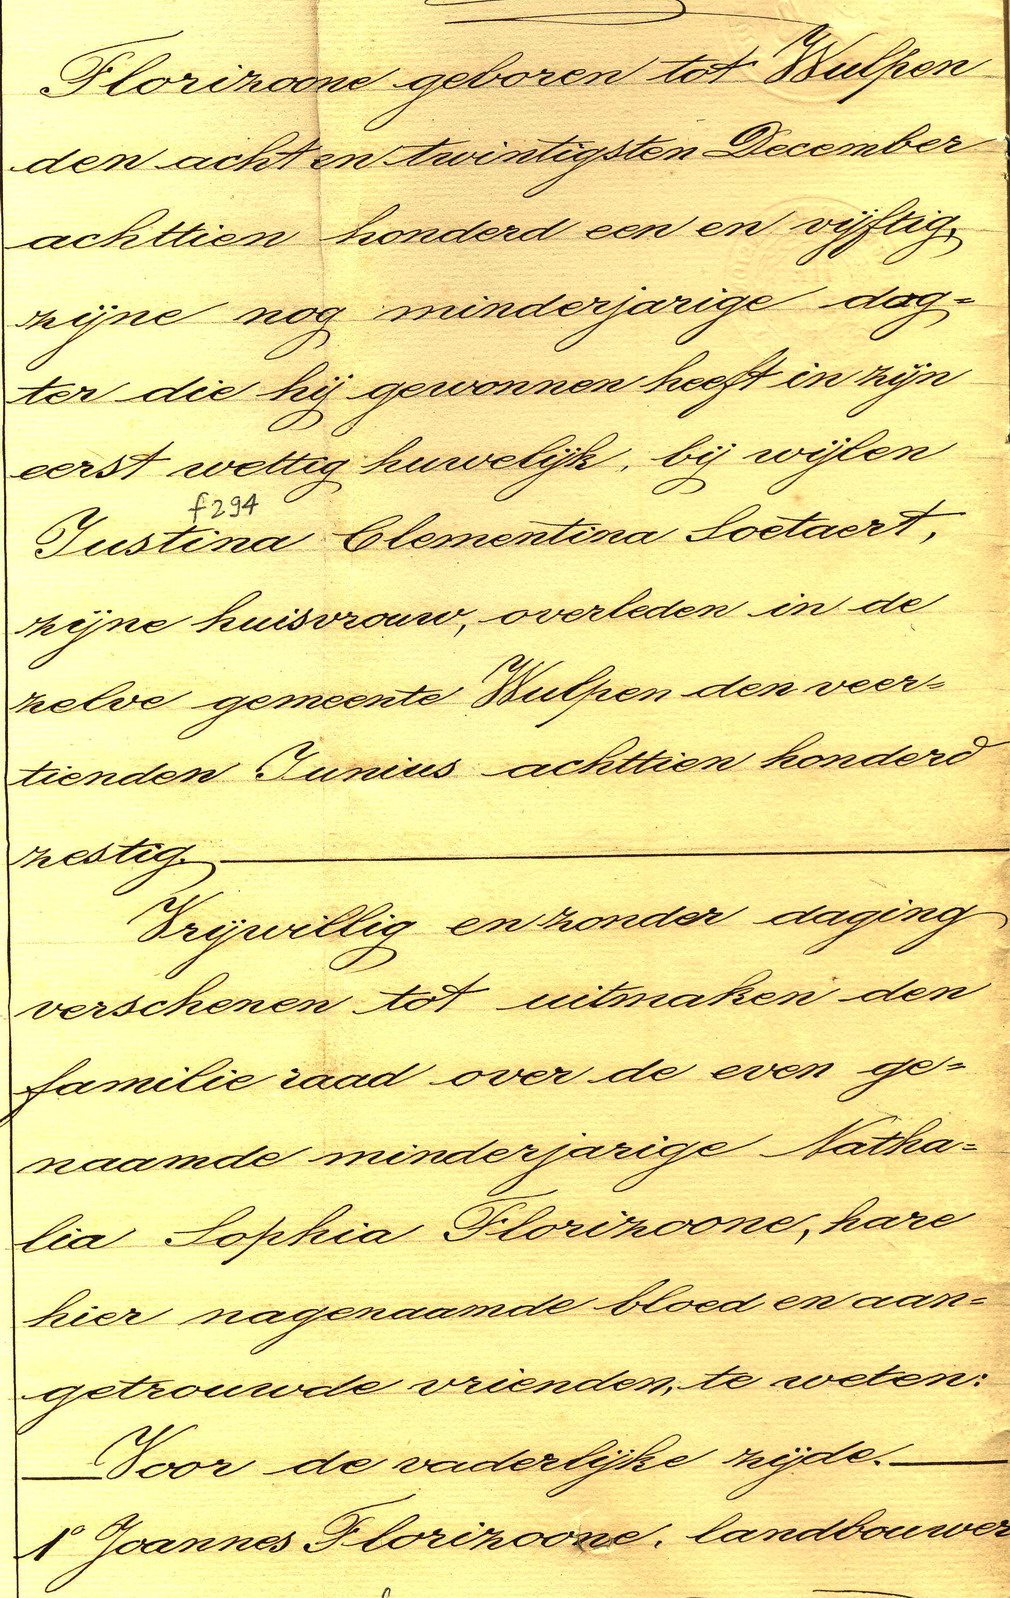 Florizoone geboren tot Wulpen
den acht en twintigsten December
achttien honderd een en vijftig,
zijne nog minderjarige dog=
ter die hij gewonnen heeft in zijn
eerst wettig huwelijk, bij wijlen
f 294
Justina Clementina Soetaert,
zijne huisvrouw, overleden in de
zelve gemeente Wulpen den veer=
tienden Junius achttien honderd
zestig.
Vrijwillig en zonder daging
verschenen tot uitmaken den
familie raad over de even ge=
naamde minderjarige Natha=
lia Sophia Florizoone, hare
hier nagenaamde bloed en aan=
getrouwde vrienden, te weten:
Voor de vaderlijke zijde.
1° Joannes Florizoone, landbouwer